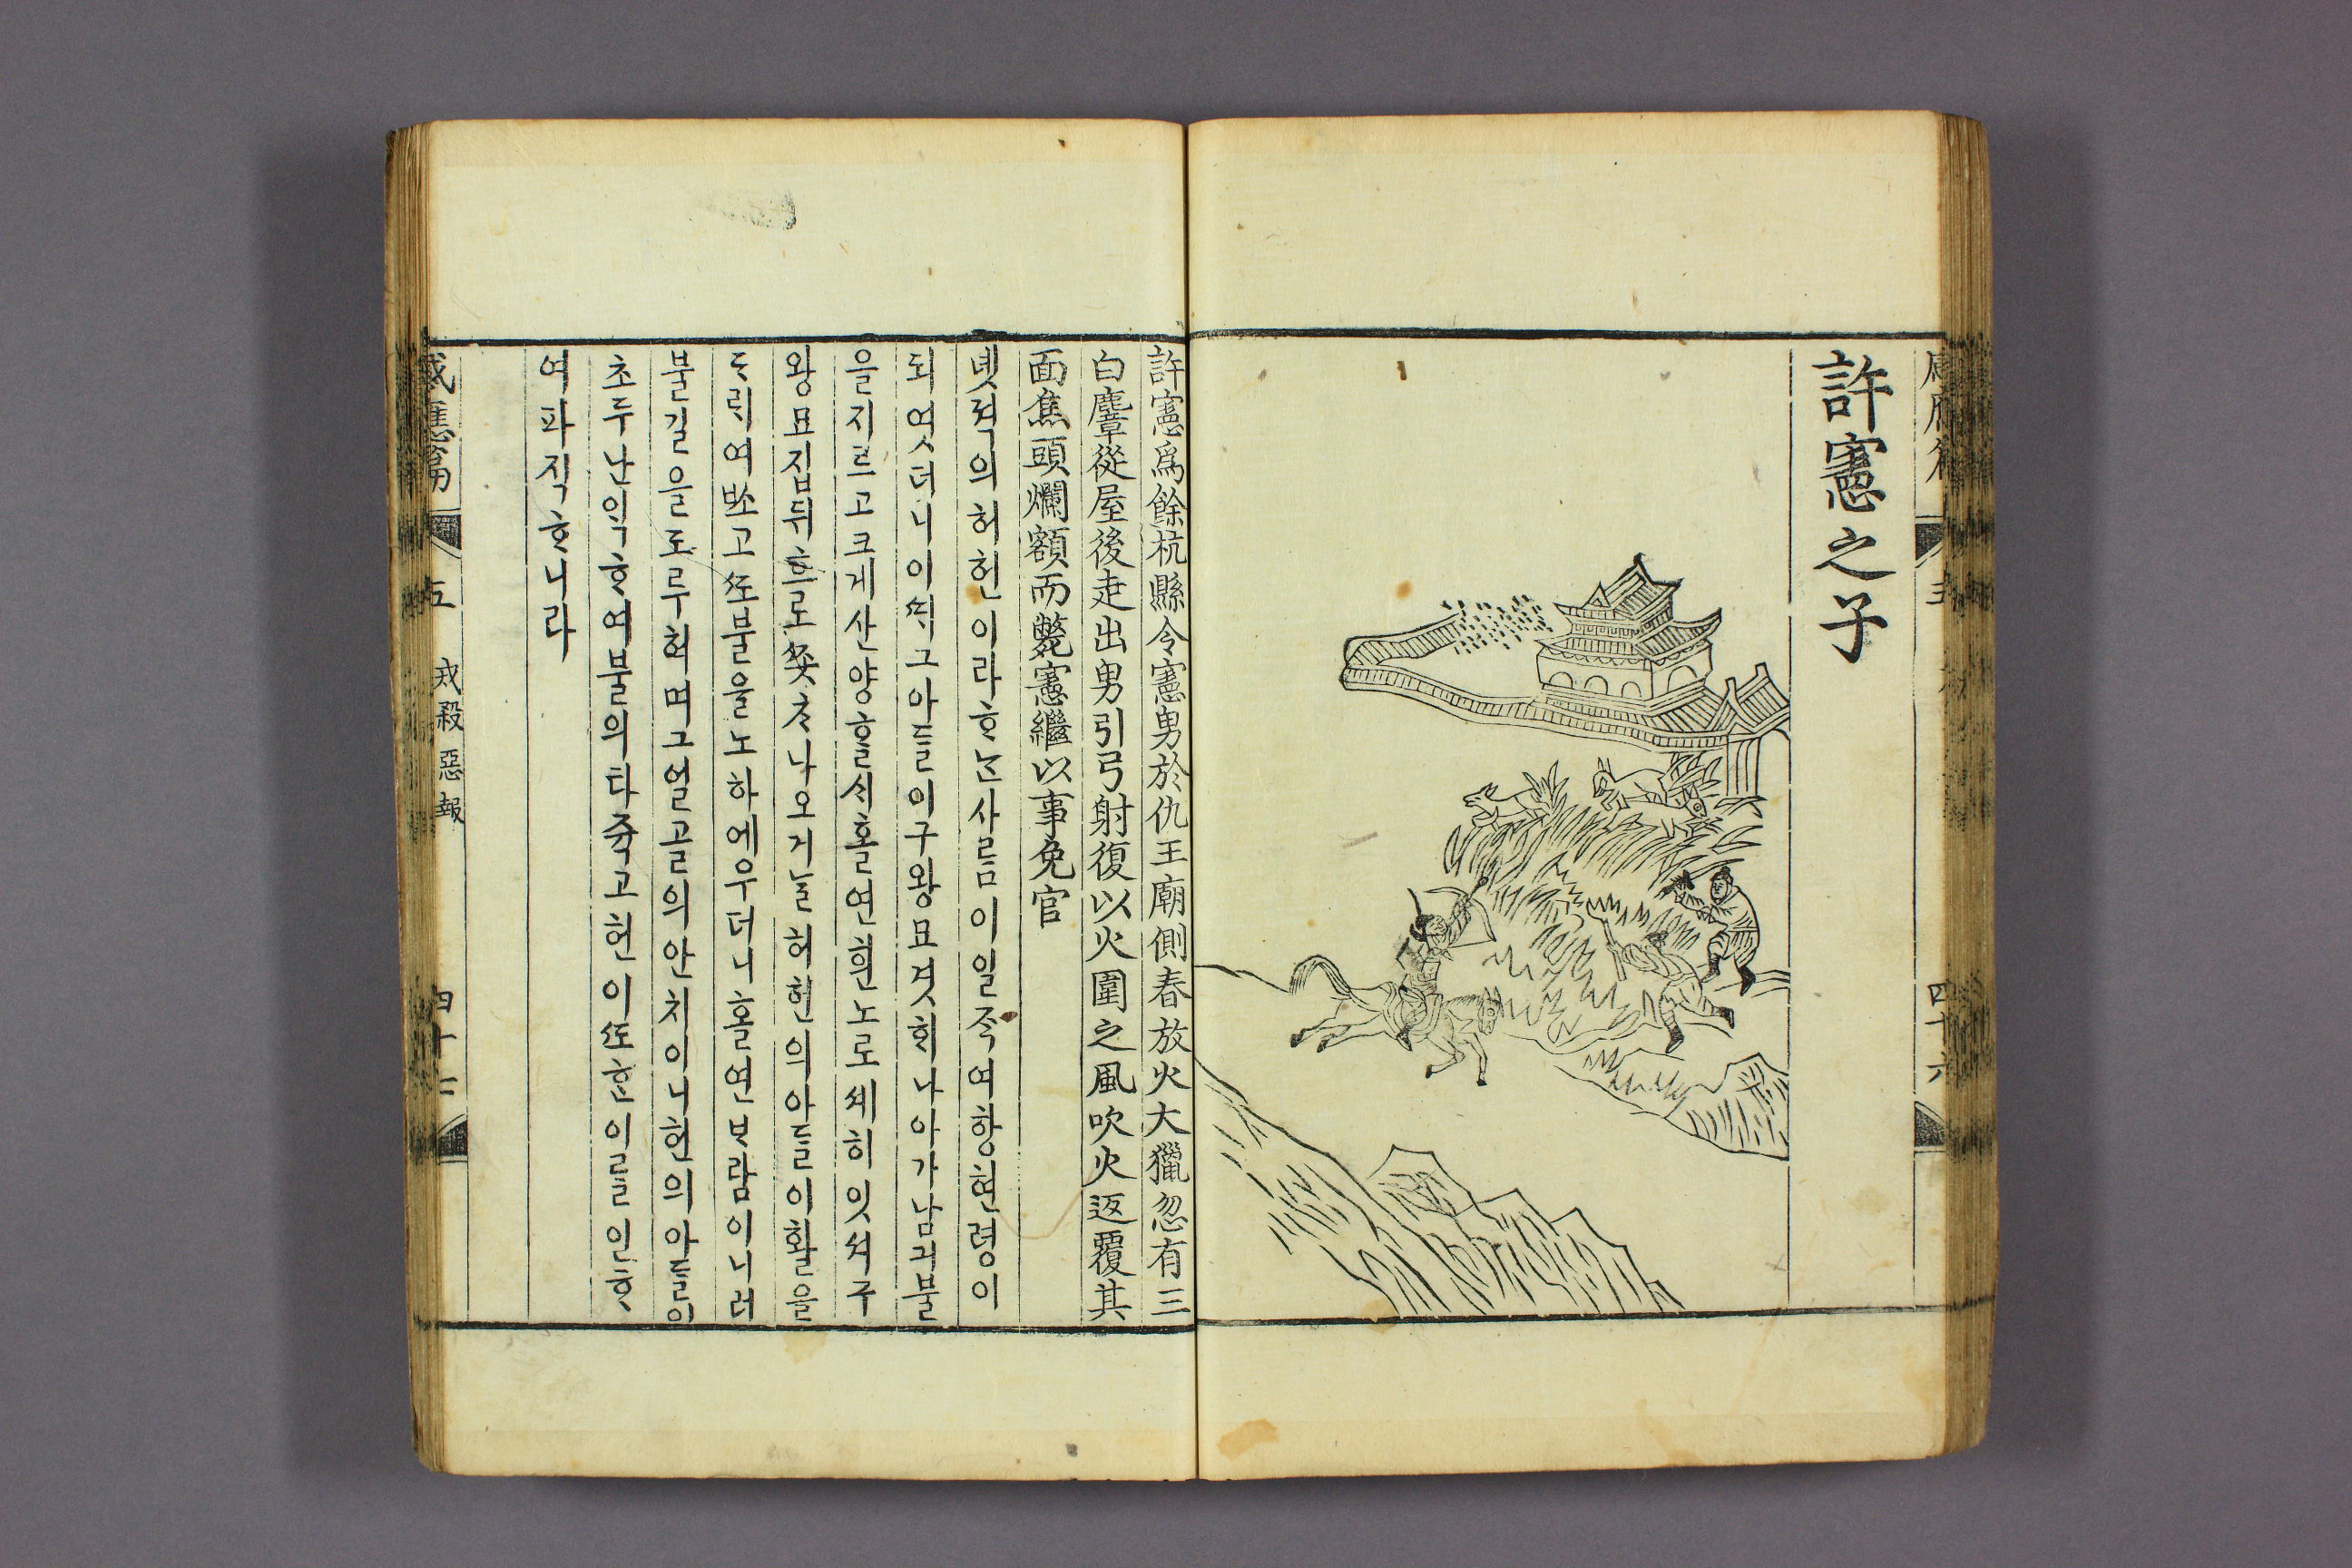 許憲之子
許憲爲餘杭縣令憲男於仇王廟側春放火大獵忽有三
白麞從屋後走出男引弓射復以火圍之風吹火返覆其
面焦頭爛額而斃憲繼以事免官
녯적의허헌이라ᄒᆞᄂᆞᆫ사ᄅᆞᆷ이일즉여항현령이
되엿더니이ᄯᆡ그아들이구왕묘겻ᄒᆡ나아가남긔불
을지르고크게산양ᄒᆞᆯᄉᆡ홀연흰노로셰히잇셔구
왕묘집뒤흐로ᄶᅩᆺᄎᆞ나오거ᄂᆞᆯ허헌의아들이활을
ᄃᆞᄅᆡ여ᄡᅩ고ᄯᅩ불을노하에우더니홀연ᄇᆞ람이니러
불길을도루혀며그얼골의안치이니헌의아들이
초두난익ᄒᆞ여불의타쥭고헌이ᄯᅩᄒᆞᆫ이를인ᄒᆞ
여파직ᄒᆞ니라
感應篇 五 戒殺惡報 四十七